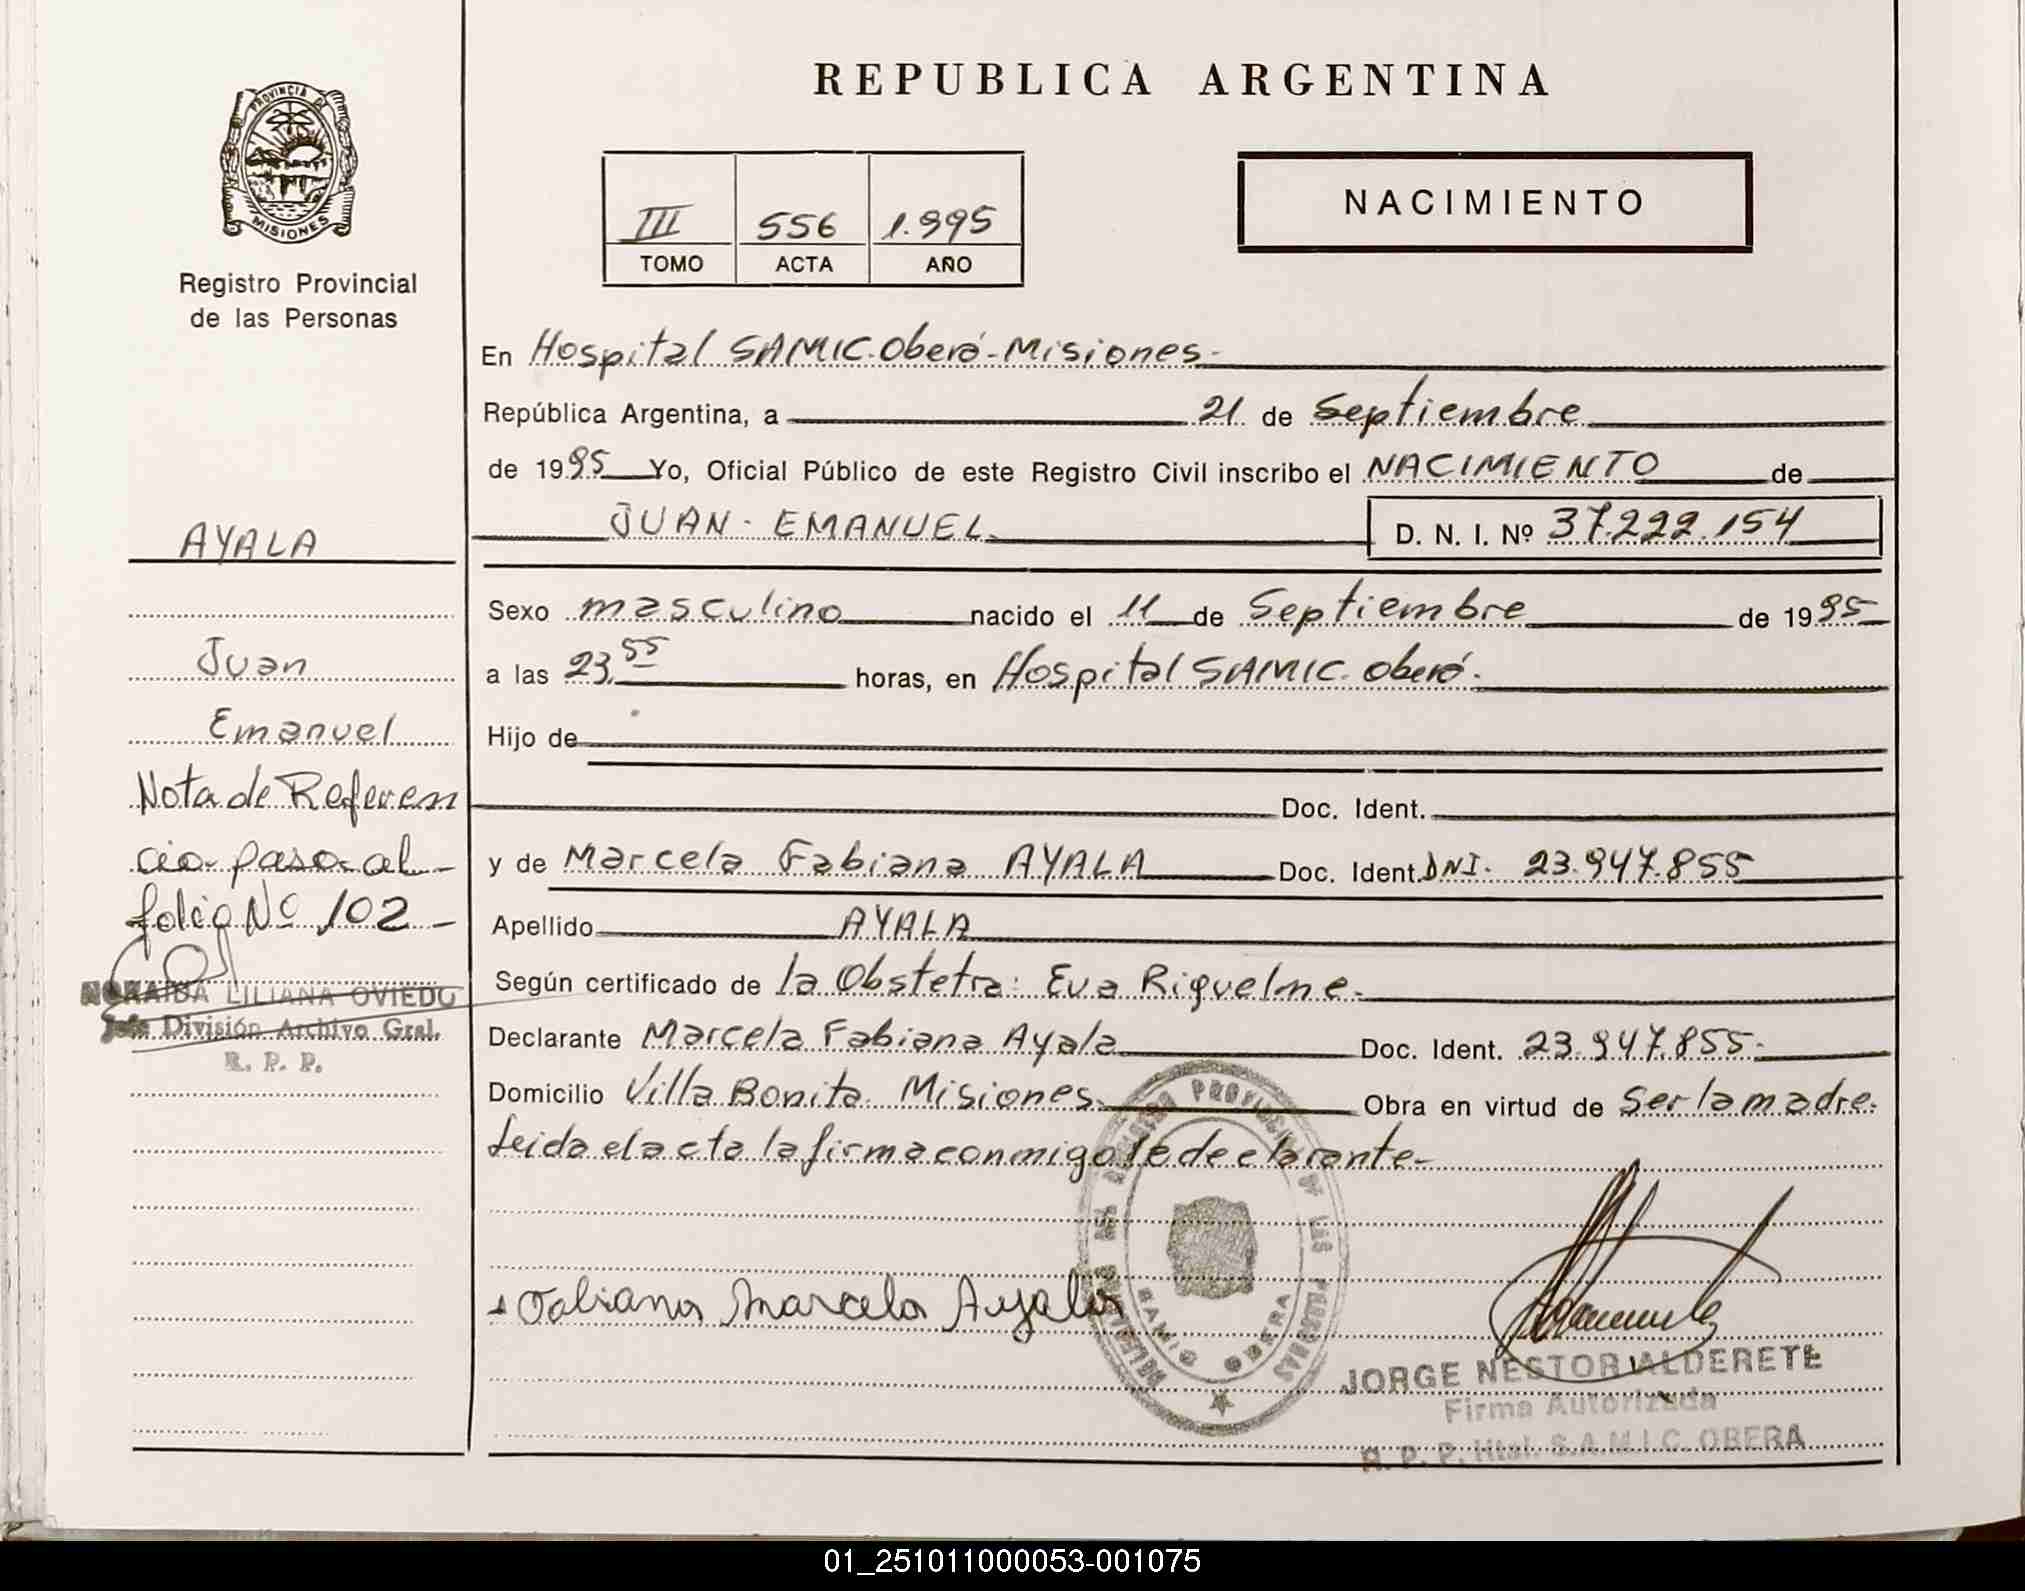 REPUBLICA ARGENTINA
PROVINCIA D MISIONES
Registro Provincial
de las Personas
III 556 1.995
TOMO ACTA AÑO
NACIMIENTO
En Hospital SAMIC. Oberá - Misiones.
República Argentina, a 21 de Septiembre
de 1995 Yo, Oficial Público de este Registro Civil inscribo el NACIMIENTO de
JUAN - EMANUEL D. N. I. Nº 37.222.154
Sexo masculino nacido el 11 de Septiembre de 1995
a las 23.55 horas, en Hospital SAMIC. Oberá.
Hijo de
Doc. Ident.
y de Marcela Fabiana AYALA Doc. Ident. DNI. 23.947.855
Apellido AYALA
Según certificado de la Obstetra: Eva Riquelme.
Declarante Marcela Fabiana Ayala Doc. Ident. 23.947.855.
Domicilio Villa Bonita. Misiones. Obra en virtud de Ser la madre.
Leida el acta la firma conmigo le declarante-
AYALA
Juan
Emanuel
Nota de Referen
cia paso al
folio Nº 102
NORAIDA LILIANA OVIEDO
Jefa División Archivo Gral.
R. P. P.
Fabiana Marcela Ayala
PROVINCIAL DE LAS PERSONAS
SAMIC OBERA
JORGE NESTOR ALDERETE
Firma Autorizada
R. P. P. Htal. S.A.M.I.C. OBERA
01_251011000053-001075